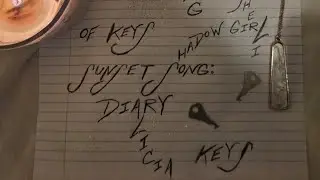 G
OF KEYS
SHADOW GIRL
SUNSET SONG:
DIARY
LICIA KEYS